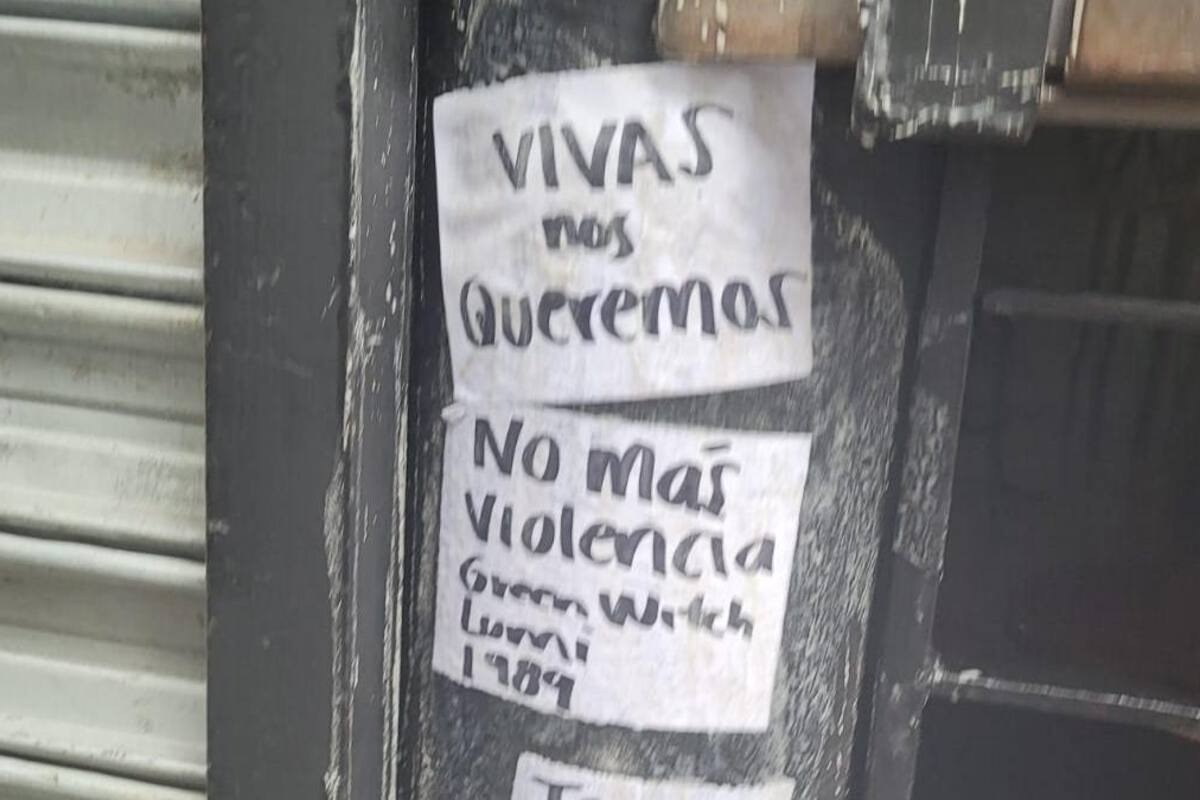 VIVAS
nos
Queremos
No más
Violencia
Green Witch
Lumi
1989